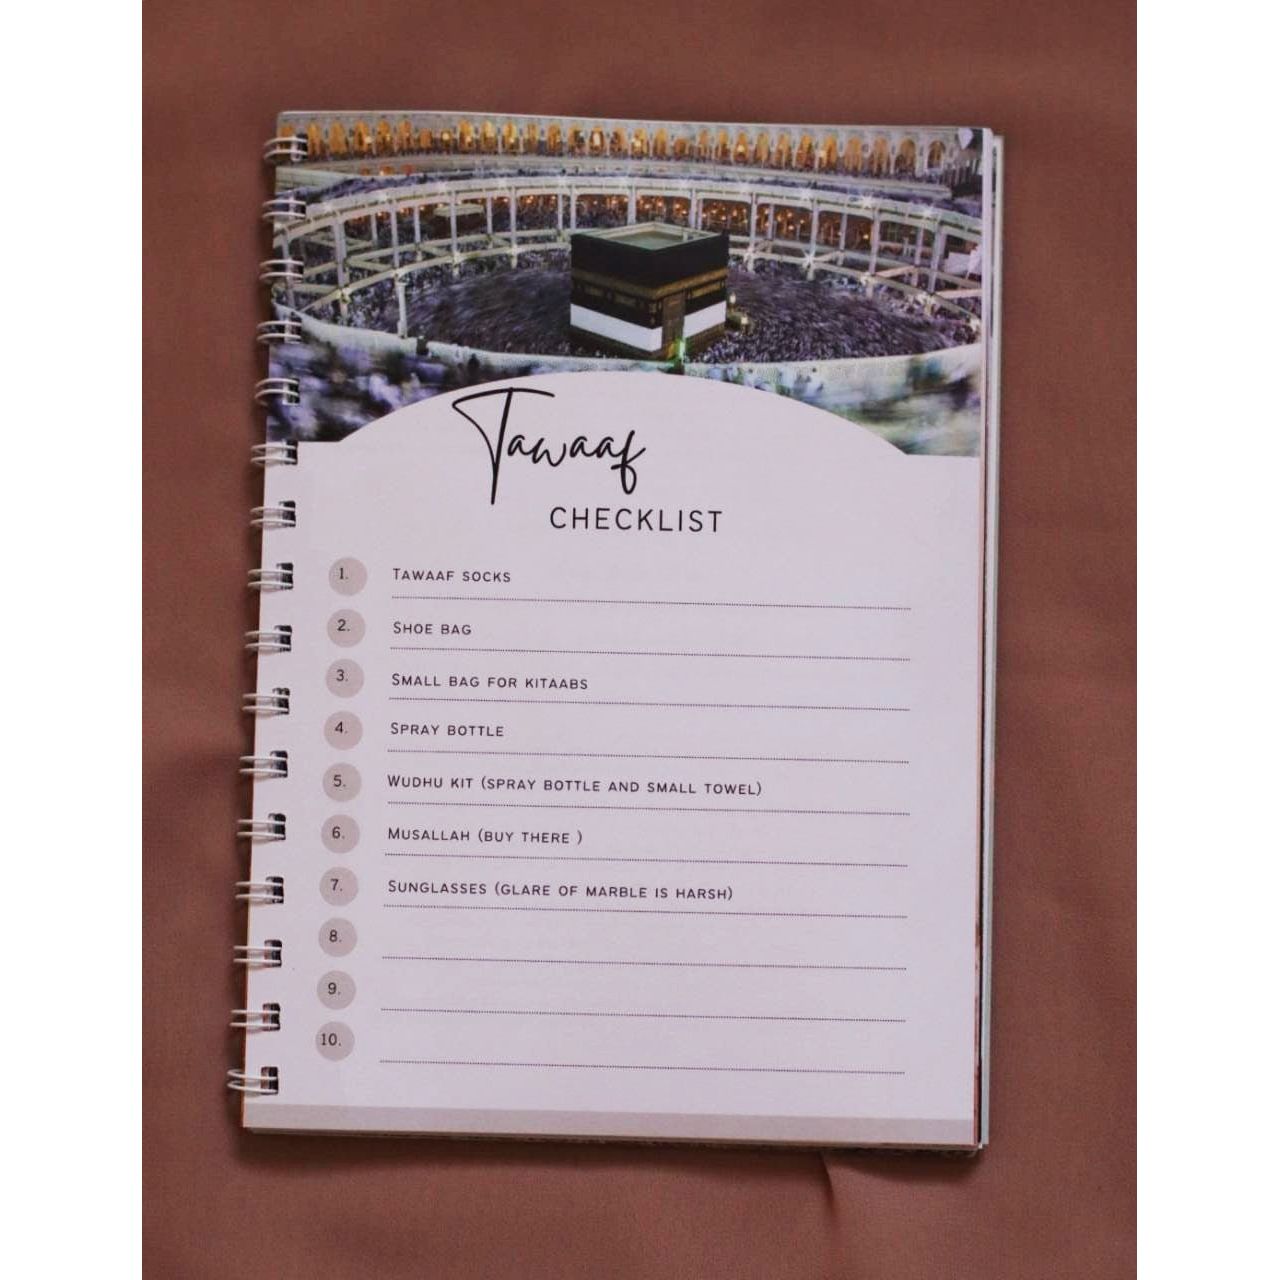 Tawaaf
CHECKLIST
1. TAWAAF SOCKS
2. SHOE BAG
3. SMALL BAG FOR KITAABS
4. SPRAY BOTTLE
5. WUDHU KIT (SPRAY BOTTLE AND SMALL TOWEL)
6. MUSALLAH (BUY THERE )
7. SUNGLASSES (GLARE OF MARBLE IS HARSH)
8.
9.
10.